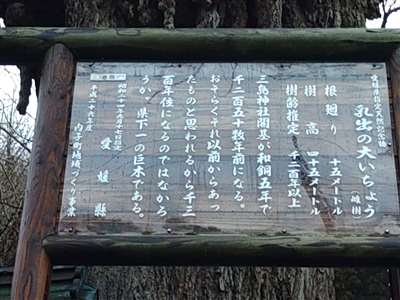 愛媛県指定天然記念物
乳出の大いちょう
(雄樹)
根廻り　十五メートル
樹高　四十五メートル
樹齢推定　千二百年以上
三島神社開基が和銅五年で
千二百五十数年前になる。
おそらくそれ以前からあっ
たものと思われるから千三
百年位になるのではなかろ
うか。県下一の巨木である。
昭和二十四年九月十七日指定
愛媛県
平成二十六年度
内子町地域づくり事業